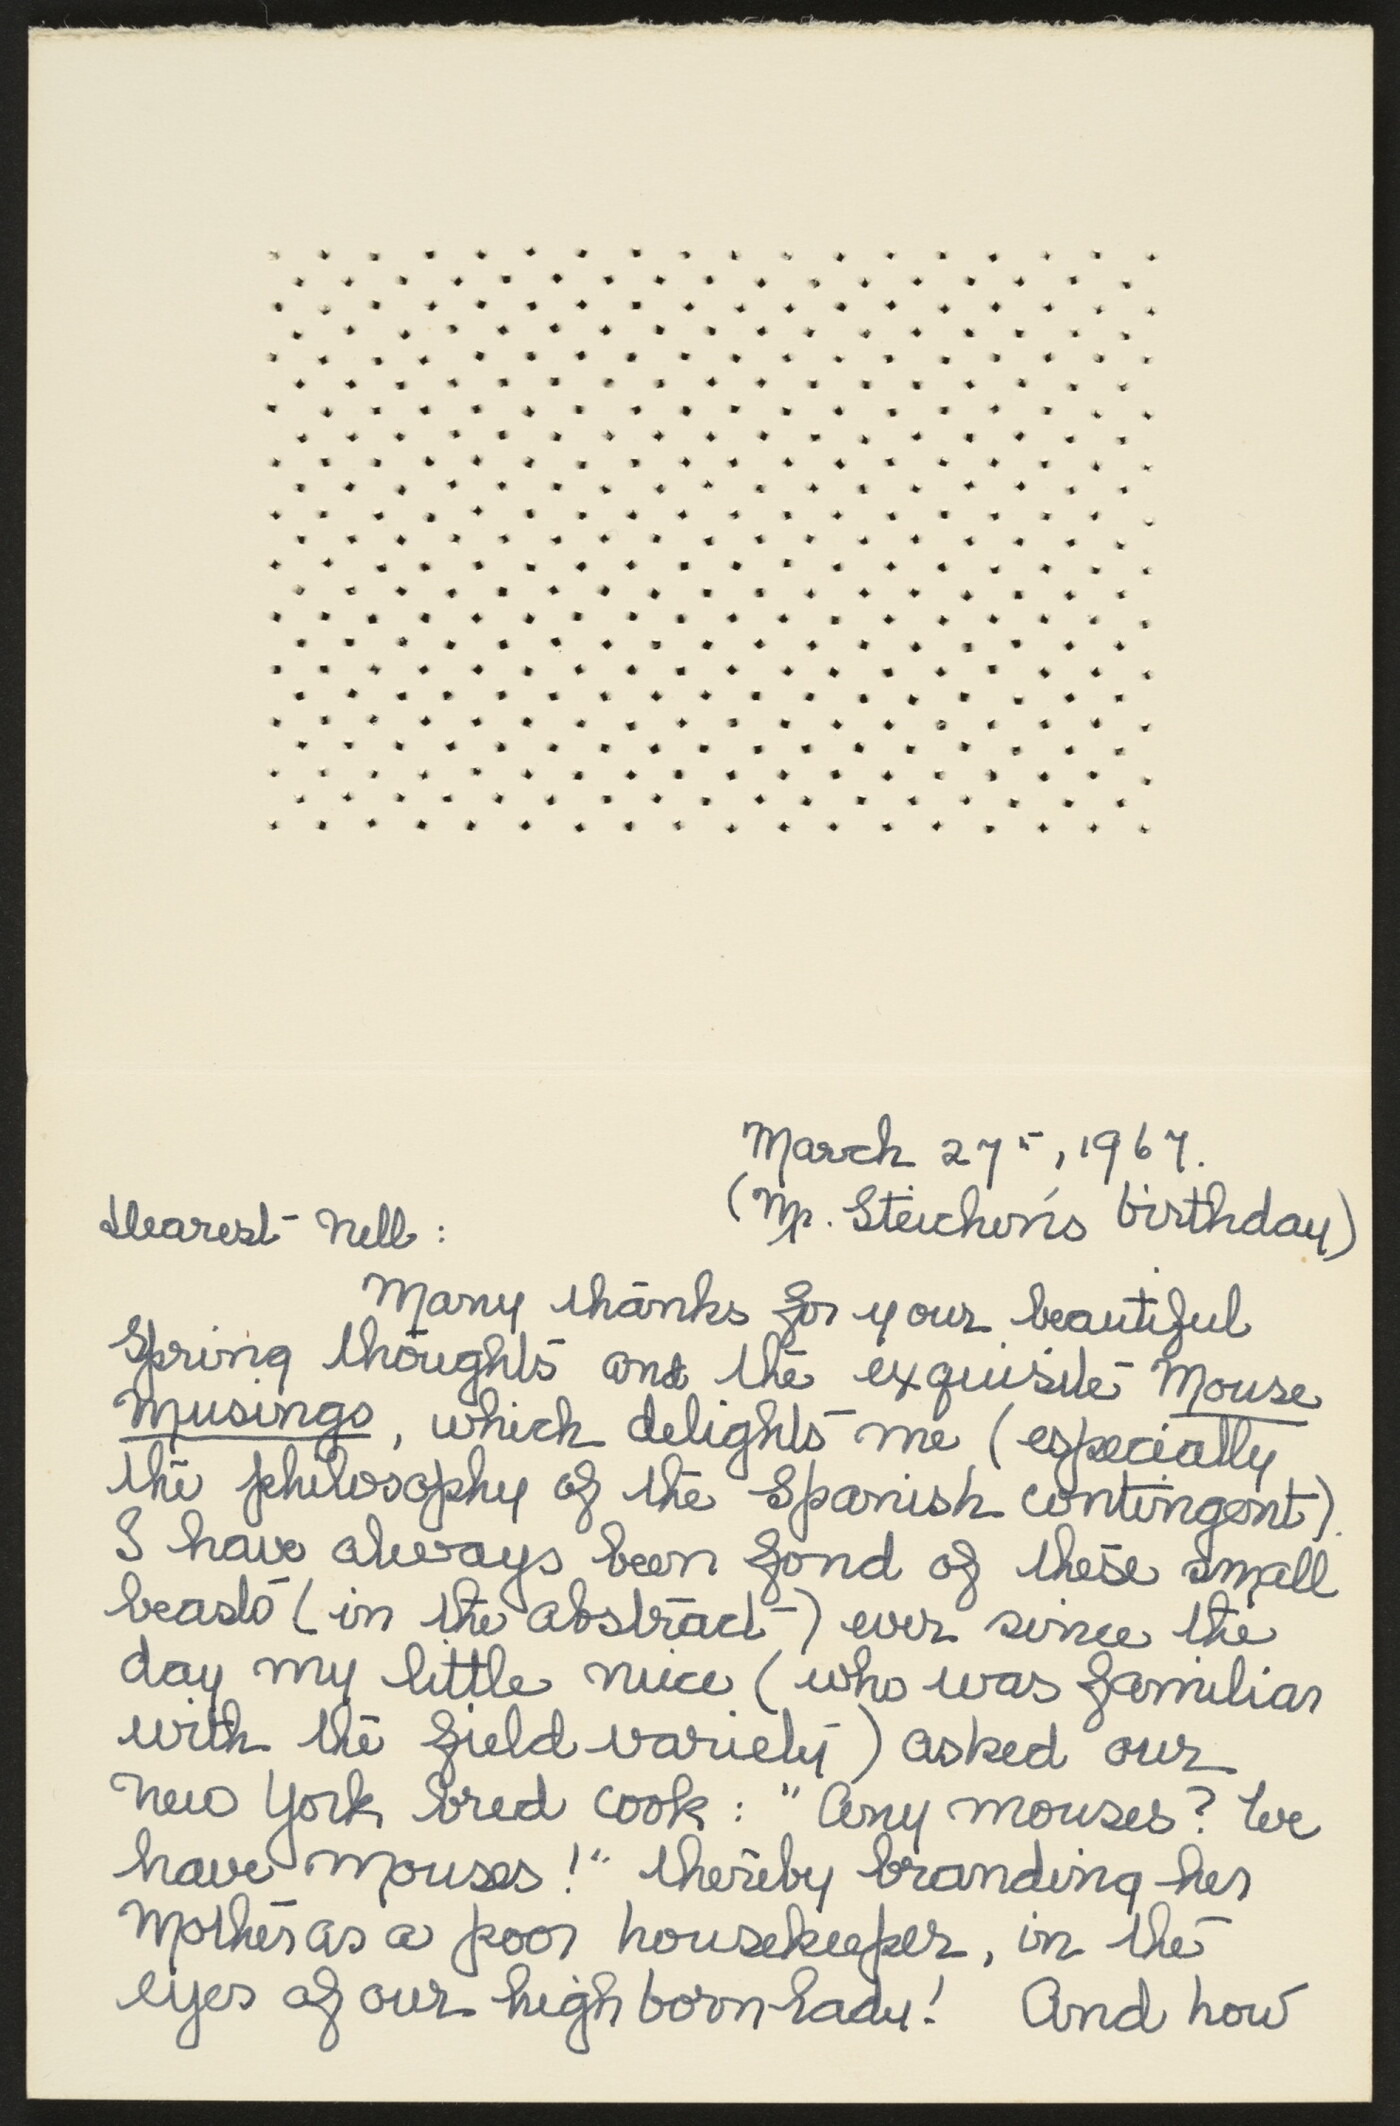 March 27th, 1967.
(Mr. Steichen's birthday)
Dearest Nell:
Many thanks for your beautiful
Spring thoughts and the exquisite Mouse
Musings, which delights me (especially
the philosophy of the Spanish contingent).
I have always been fond of these small
beasts (in the abstract) ever since the
day my little niece (who was familiar
with the field variety) asked our
New York bred cook: "Any mouses? We
have mouses!" thereby branding her
Mother as a poor housekeeper, in the
eyes of our high born lady! And how